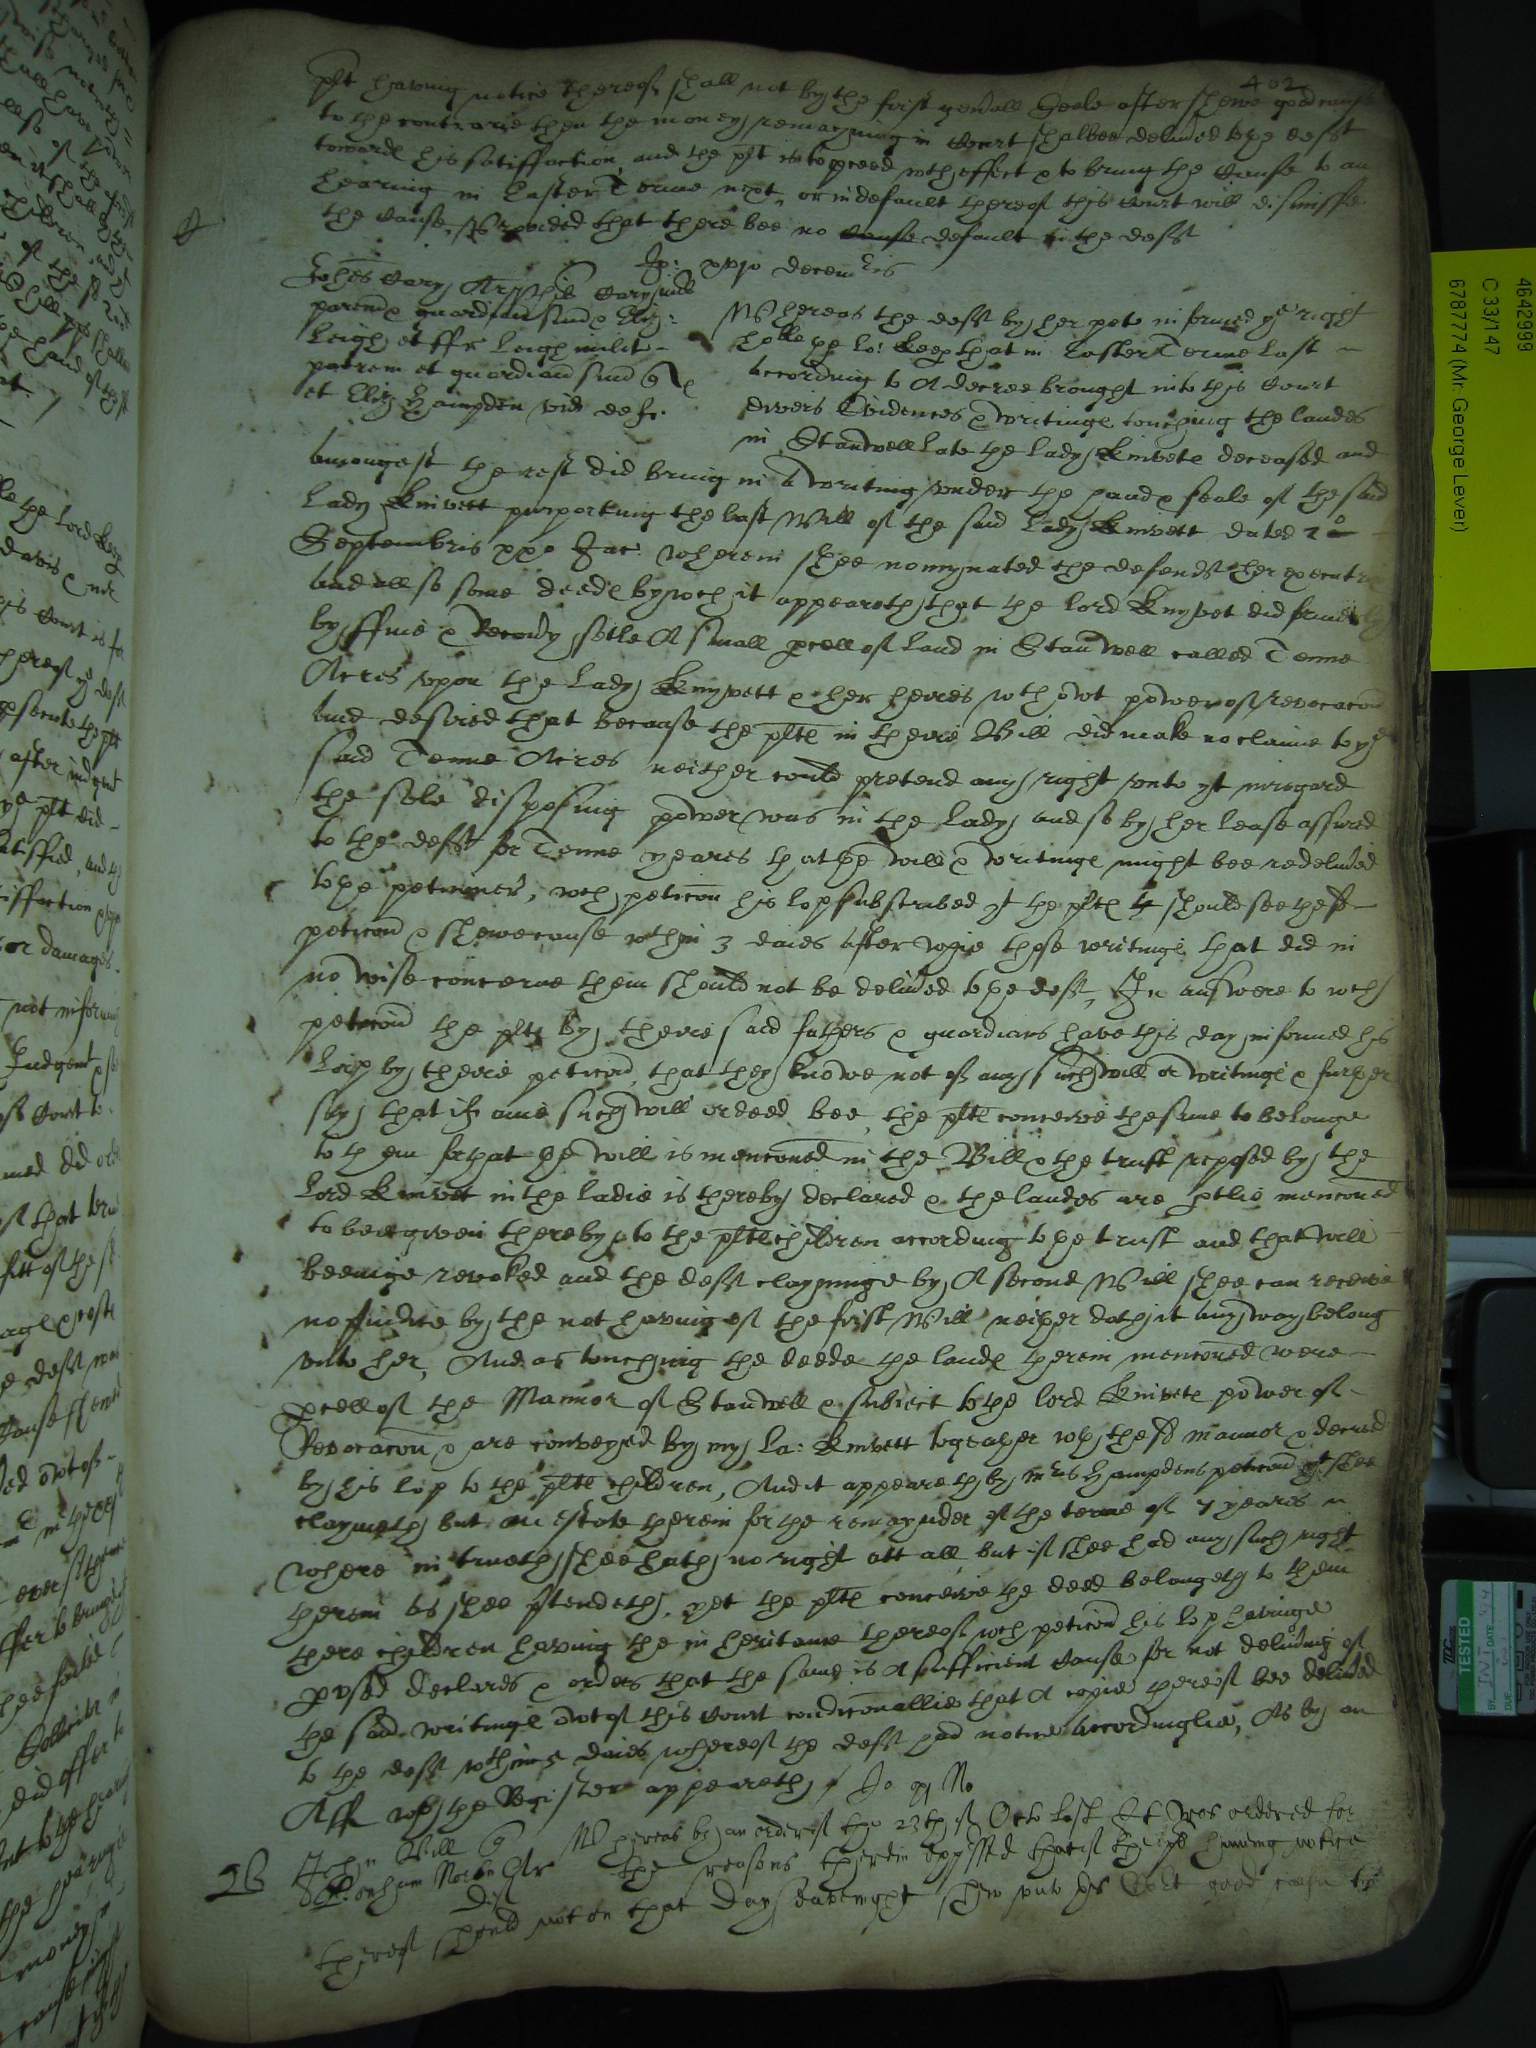 402
plt having notice thereof shall not by the first genãll Seale after shewe good cause
to the contrarie then the money remayning in Court shalbee deliũed to the deft
towards his satisfaction, and the plt is to pceed wth effect & to bring the Cause to an
hearing in Easter Terme next, or in default thereof this Court will dismisse
the Cause, Provided that there bee no Cause default in the deft
decemris
Johes Cary Ar
parem & guardian suu & Eliz:
Leigh et ffr Leigh milit
patrem et guardian suu
et Eliz Hampden vid deft.
Whereas the deft by her peto informed ye right
hoble the lo: Keep that in Easter Terme last
according to A decree brought into this Court
divers Evidences & writings touching the landes
in Stanwell late the Lady Knivets deceased and
amongest the rest did bring in a writing under the hand & seale of the said
Lady Knivett purporting the last Will of the said Lady Knivett dated 20
Septembris xxo Jac: wherein shee nomynated the defendt her executrix
and allso some deeds by wch it appeareth that the lord Knyvet did
by ffine & Recovy setle A small pcell of Land in Stanwell called Tenne
Acres upon the Lady Knyvett & her heires wthowt power of revocacon
And desired that because the plts in theire Bill did make no claime to ye
said Tenne Acres neither could pretend any right unto yt in regard
the sole disposing power was in the Lady and so by her lease assured
to the deft for Tenne yeares that the will & writings might bee redeliũed
to the peticoner, wch peticon his lop subscribed yt the plts should see the sd
peticon & shewe cause wthin 3 daies after whie those writings that did in
no wise concerne them should not be deliũed to the deft, In answere to wch
peticon the plts by theire said fathers & guardians have this day informed his
Lop by theire peticon, that they knowe not of any such will or writings & further
say that if anie such will or deed bee, the plts conceive the same to belonge
to them for that the will is menconed in the Bill & the trust reposed by the
Lord Knivet in the Ladie is thereby declared & the landes are ptlie menconed
to bee given thereby to the plts children according to the trust and that will
beeinge revoked and the deft clayminge by A second Will shee can receive
no piudice by the not having of the first Will neither doth it any way belong
unto her, And as touching the deeds the lands therein menconed were
pcell of the Mannor of Stanwell & subiect to the lord Knivets power of
Revocacon & are conveyed by my La: Knivett togeather wth the sd mannor & decreed
by his lop to the plts children, And it appeareth by mris Hampdens peticon yt shee
claymeth but an estate therein for the remaynder of the terme of 7 yeares
where in trueth shee hath no right att all but if shee had any such right
therein as shee ptendeth, yet the plts conceive the deed belongeth to them
there children having the inheritance thereof wch peticon his lop havinge
pused declares & orders that the same is A sufficient cause for not deliũing of
the said writings owt of this Court condiconallie that A copie thereof bee deliũed
to the deft wthin 5 daies whereof the deft had notice accordinglie, As by an
Aff wth the Register appeareth
2B
John Will
Norton Ar
Def
Whereas by an order of the 23th of Octo last It was ordered for
the reasons therein expssed that if the having notice
thereof should not on that day seavenight shew unto this Cort good cause to ye
4642999
C 33/147
6787774 (Mr. George Lever)
TESTED
BY
DATE
DUE